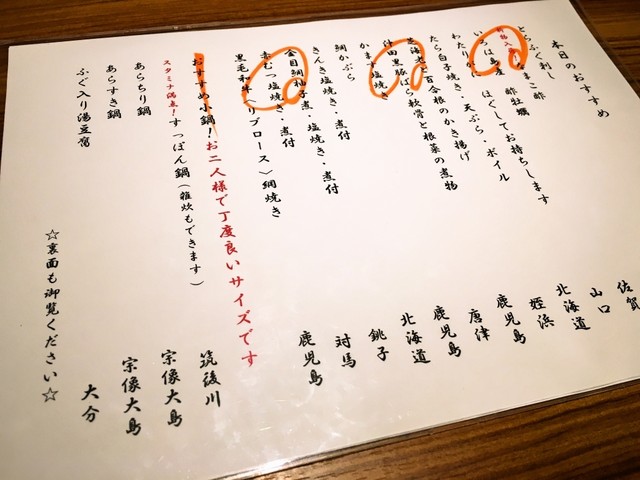 本日のおすすめ
とらふぐ刺し
まこ酢
いろは島産 酢牡蠣
ほぐしてお持ちします
たら白子焼き・天ぷら・ボイル
百合根のかき揚げ
黒豚ばら軟骨と根菜の煮物
かます塩焼き
鯛かぶら
きんき塩焼き・煮付
金目鯛柚子煮・塩焼き・煮付
赤むつ塩焼き・煮付
黒毛和牛 リブロース〉網焼き
佐賀
山口
北海道
姪浜
鹿児島
唐津
鹿児島
北海道
銚子
対馬
鹿児島
おすすめ小鍋!お二人様で丁度良いサイズです
スタミナ満点!すっぽん鍋(雑炊もできます) 筑後川
あらちり鍋 宗像大島
あらすき鍋 宗像大島
ふぐ入り湯豆腐 大分
☆裏面も御覧ください☆